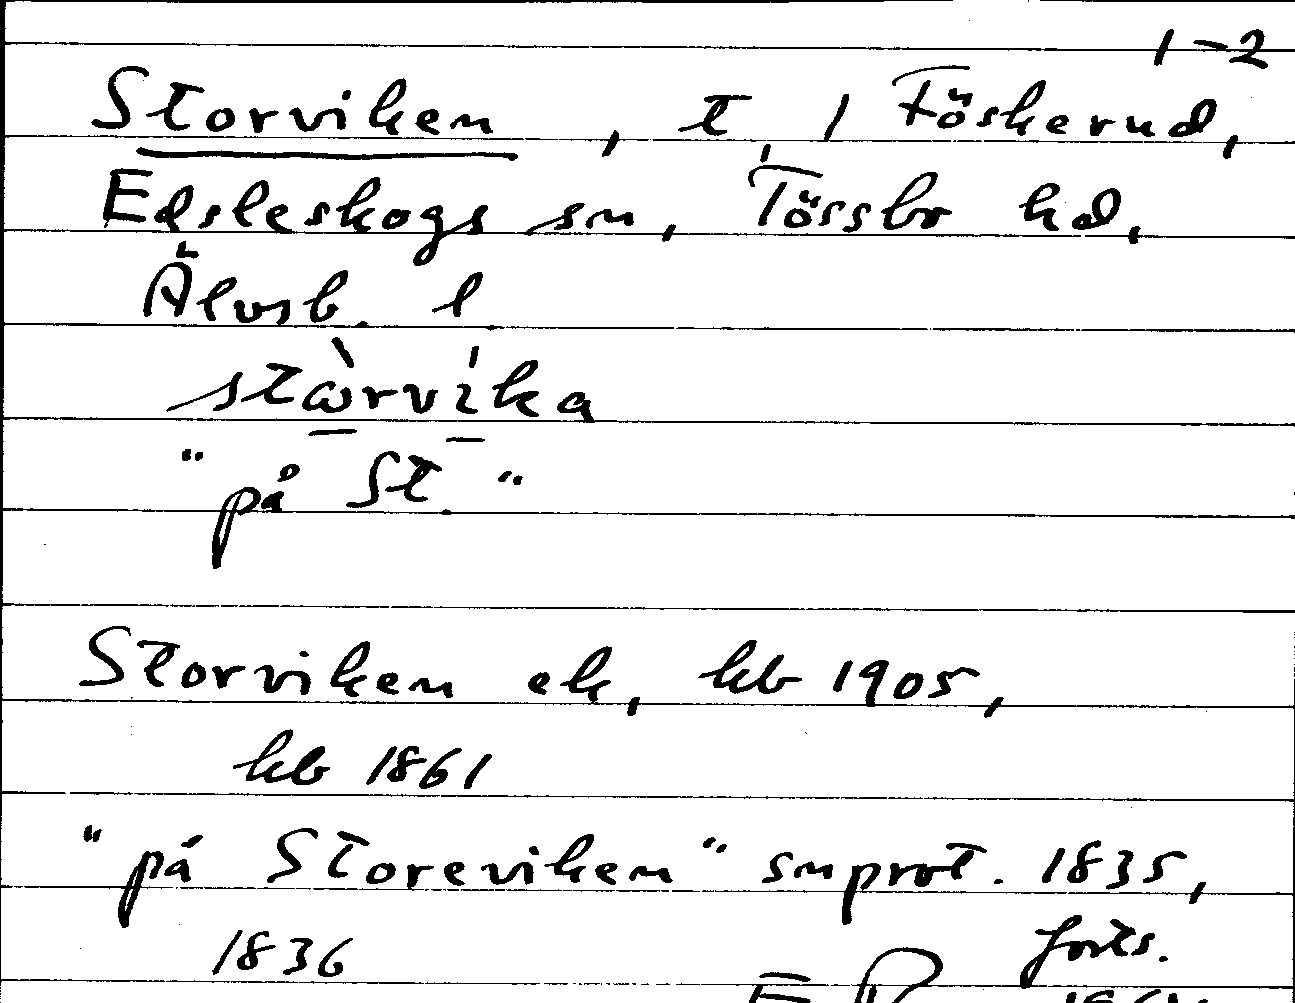 1-2
Storviken, t. 1 Föskerud,
Edsleskogs sn, Tössbo hd,
Älvsb. l.
"på St."
Storviken ek, kb 1905,
kb 1861
"på Storeviken" snprot. 1835,
1836
forts.